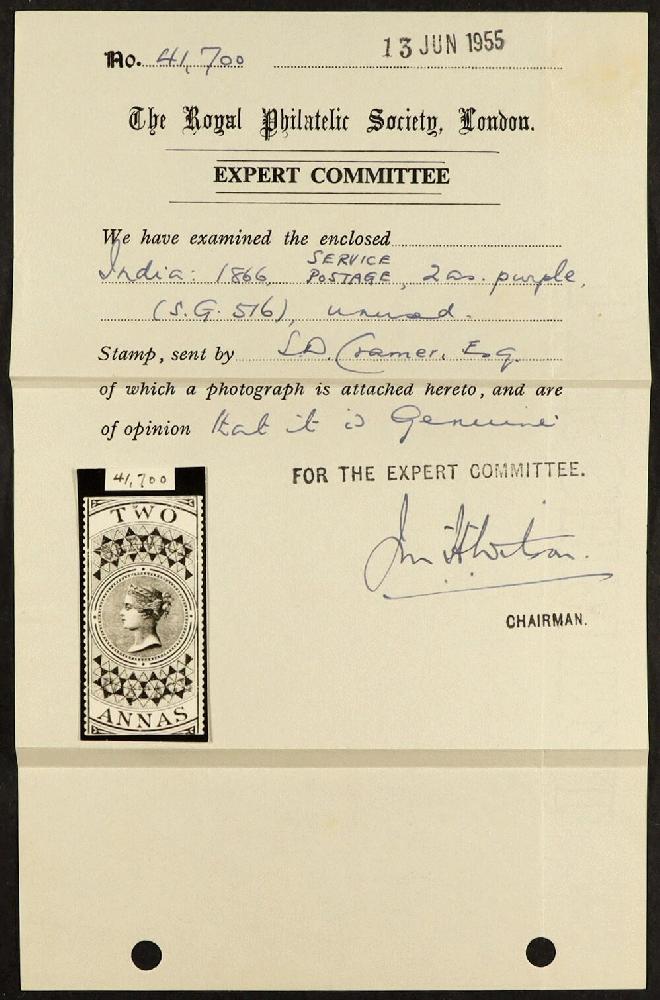 No. 41,700
13 JUN 1955
The Royal Philatelic Society, London.
EXPERT COMMITTEE
We have examined the enclosed
India: 1866, SERVICE POSTAGE, 2 as. purple,
(S.G. 516), unused.
Stamp, sent by L.D. Cramer, Esq.
of which a photograph is attached hereto, and are
of opinion that it is Genuine
41,700
TWO
ANNAS
FOR THE EXPERT COMMITTEE.
CHAIRMAN.